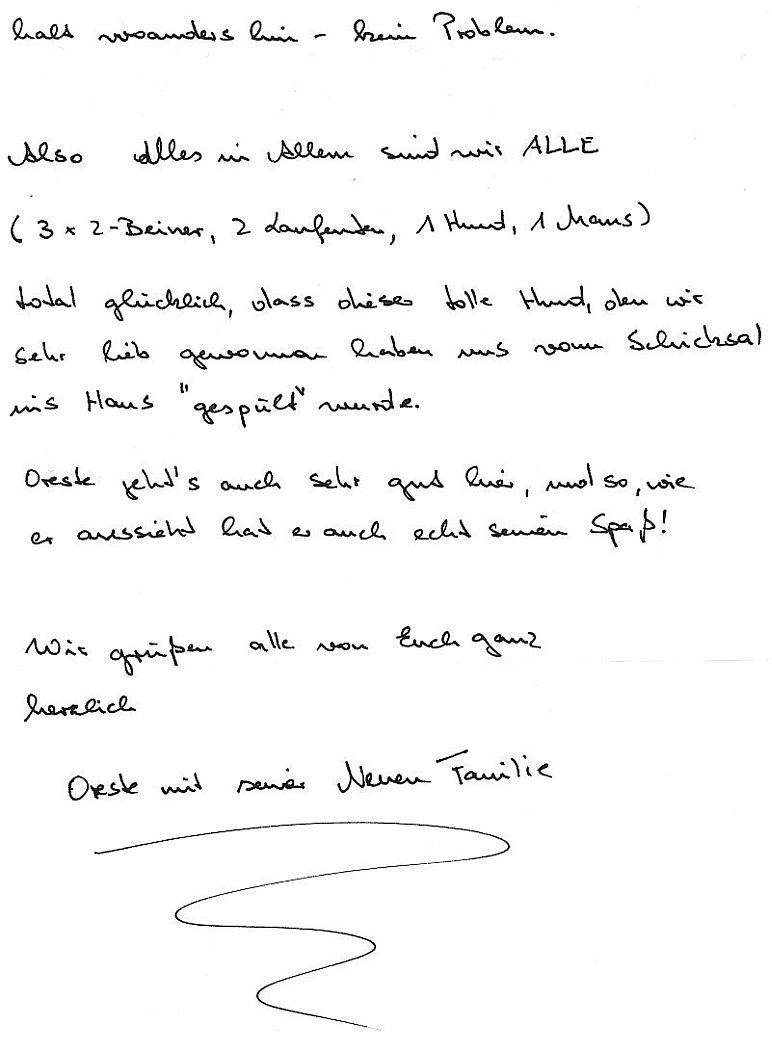 halt woanders hin - kein Problem.
Also Alles in Allem sind wir ALLE
( 3 x 2-Beiner, 2 Laufenten, 1 Hund, 1 Maus )
total glücklich, dass dieses tolle Hund, den wir
sehr lieb gewonnen haben uns vom Schicksal
ins Haus "gespült" wurde.
Oreste geht's auch sehr gut hier, und so, wie
er aussieht hat er auch echt seinen Spaß!
Wir grüßen alle von Euch ganz
herzlich
Oreste mit seiner Neuen Familie